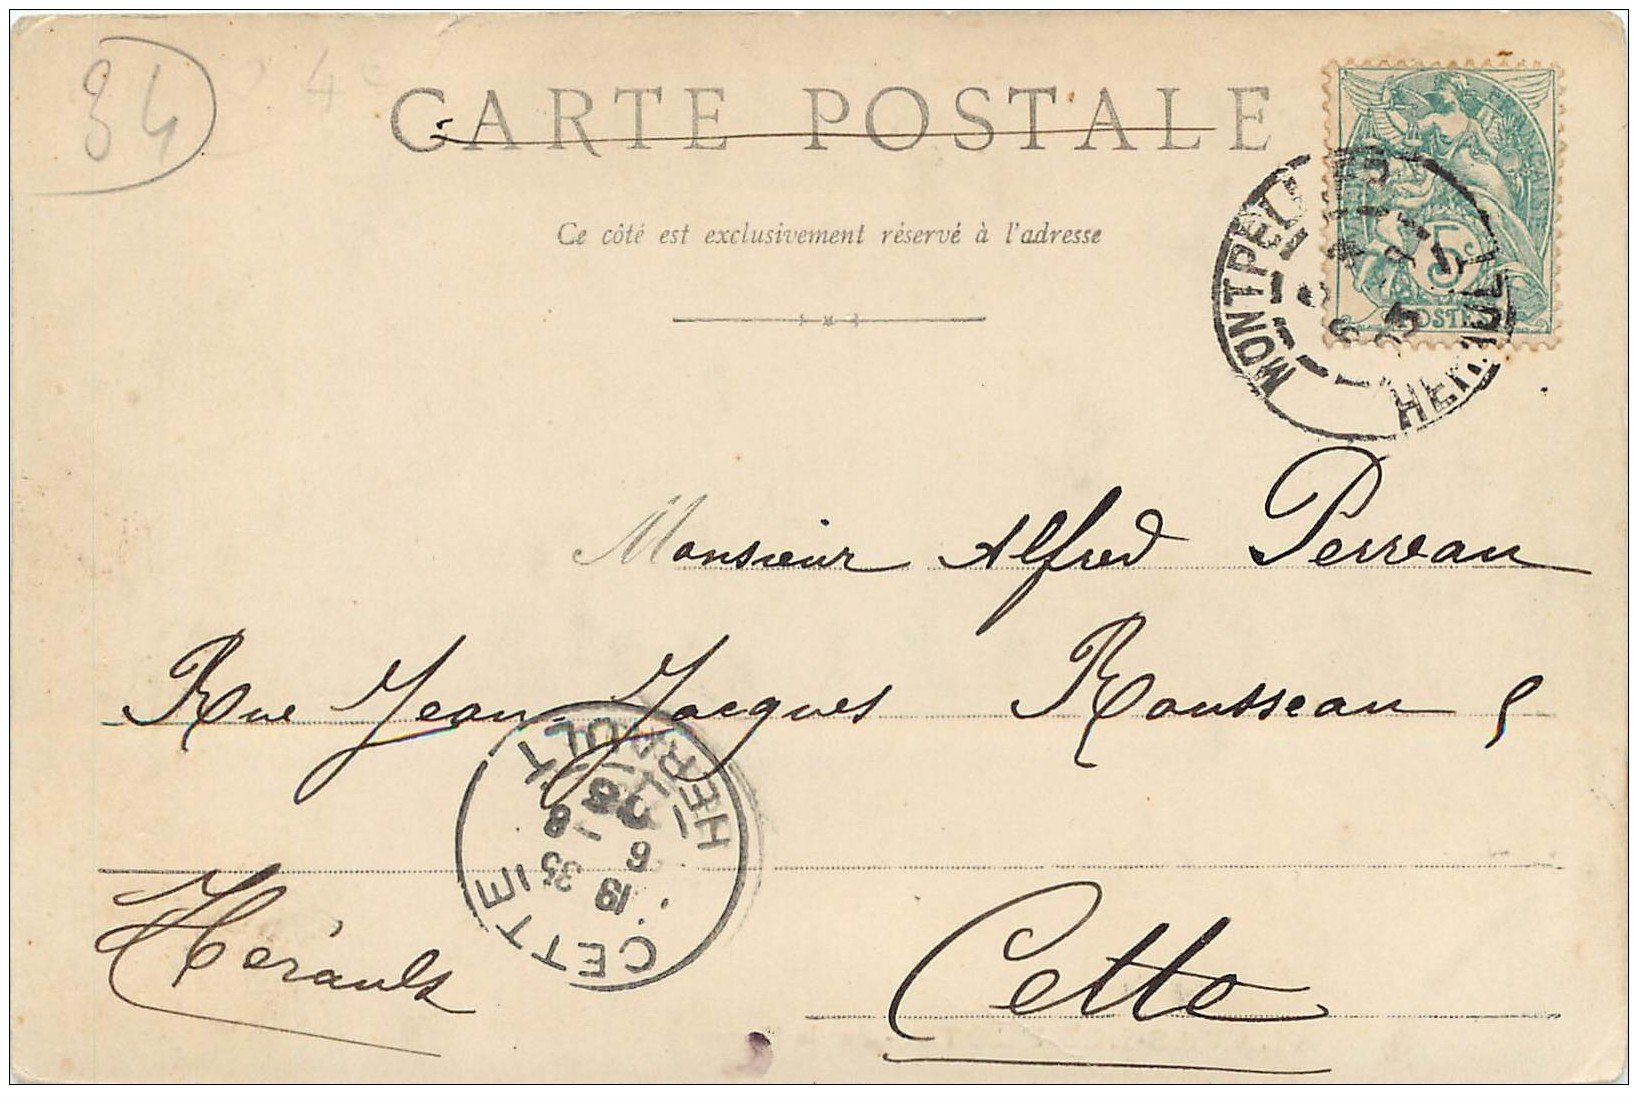 34
CARTE POSTALE
Ce côté est exclusivement réservé à l'adresse
5c
POSTES
MONTPELLIER
HERAULT
Monsieur Alfred Perreau
Rue Jean-Jacques Rousseau 5
HERAULT
CETTE
19 35
6 - 8
03
Hérault
Cette